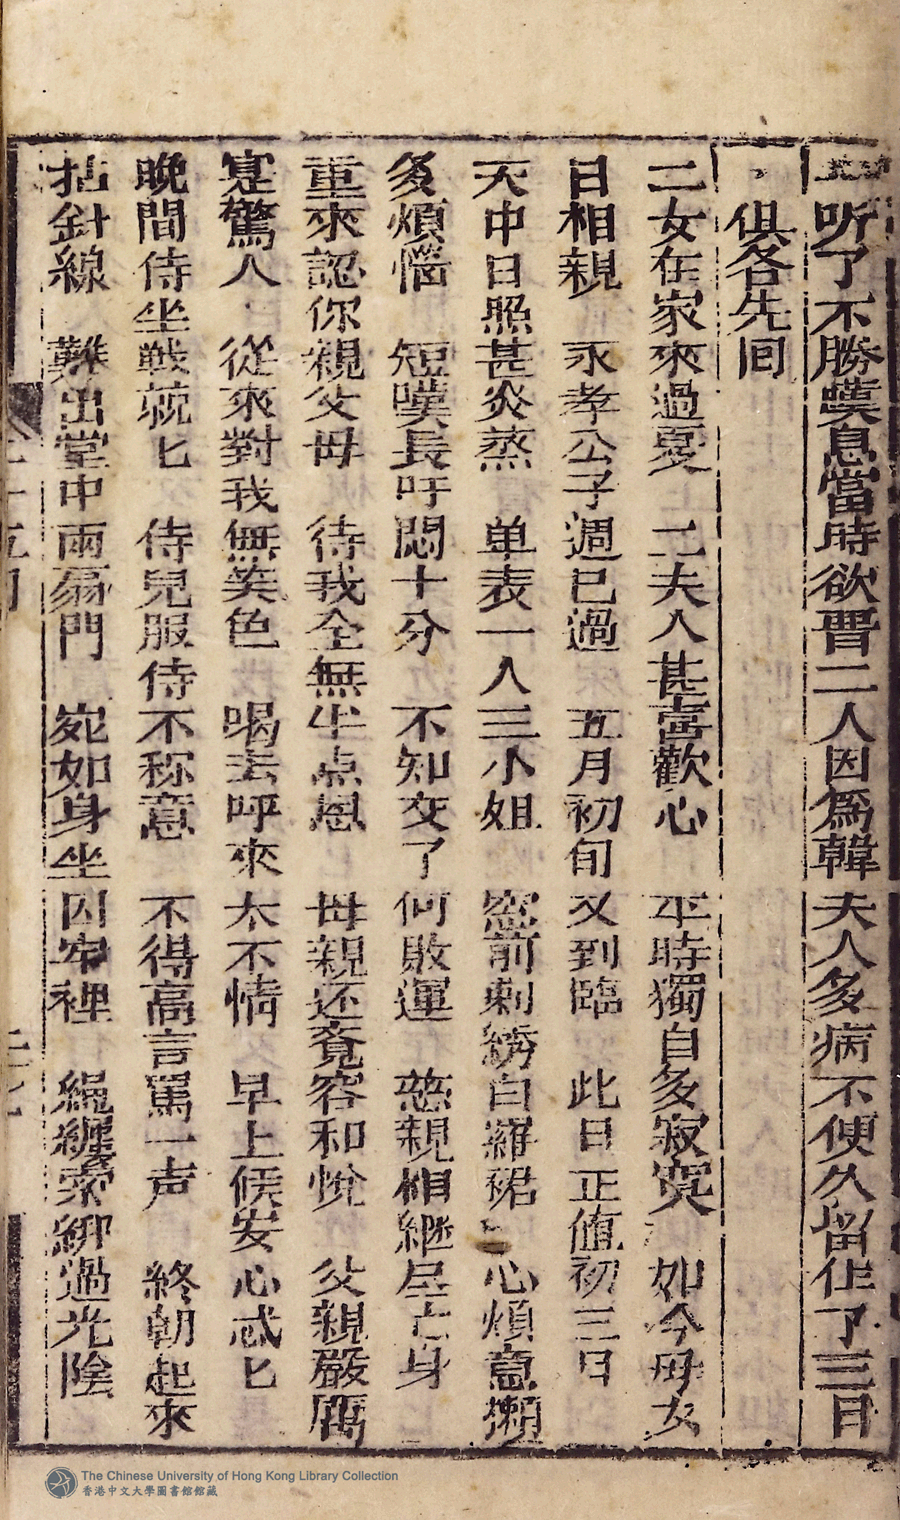 听了不勝嘆息當時欲晋二人因為韓夫人多病不便久留住了三日
俱各先囘
二女在家來過憂 二夫人甚喜歡心 平時獨自多寂寞 如今母女
日相親 永孝公子週已過 五月初旬又到臨 此日正值初三日
天中日照甚炎蒸 单表一人三小姐 窓前刺綉白羅裙 心煩意懶
多煩惱 短嘆長吁悶十分 不知交了何敗運 慈親相継星亡身
重來認你親父母 待我全無半点恩 母親还覔容和悅 父親嚴厲
寔驚人 從來對我無笑色 喝去呼來太不情 早上候安心忒匕
晚間侍坐戦兢匕 侍兒服侍不称意 不得高言罵一声 終朝起來
拈針線 難出堂中兩扇門 宛如身坐囚牢裡 繩纏索綁過光陰
The Chinese University of Hong Kong Library Collection
香港中文大學圖書館館藏